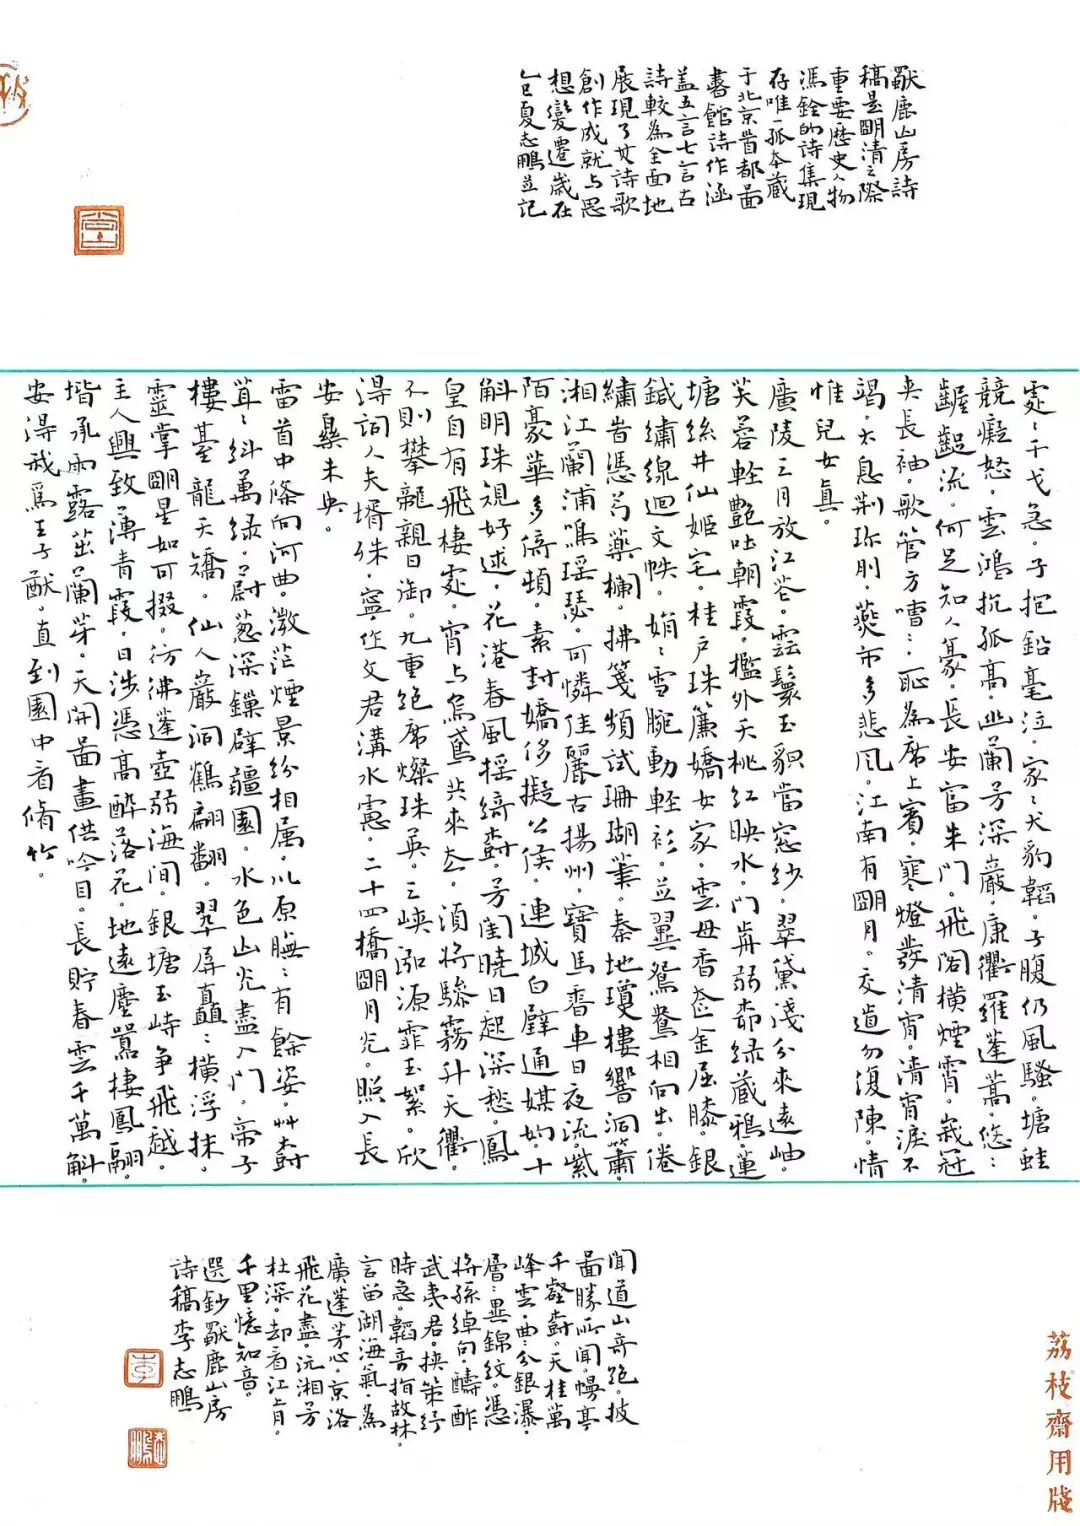 獸鹿山房詩
稿是明清之際
重要歷史人物
馮銓的詩集現
存唯一孤本藏
于北京首都圖
書館詩作涵
蓋五言七言古
詩較為全面地
展現了其詩歌
創作成就与思
想變遷歲在
乙巳夏志鵬並記
處〻干戈急。子抱鉛毫泣。家〻犬豹韜。子腹仍風騷。塘蛙
競癡怒。雲鴻抗孤高。此蘭芳深巖。康衢羅蓬蒿。悠〻
齷齪流。何足知人豪。長安富朱門。飛閣橫煙霄。峩冠
夾長袖。歌管方嘈〻。恥為席上賓。寒燈發清宵。清宵淚不
竭。太息荆珎刖。燕市多悲風。江南有明月。交道勿復陳。情
惟兒女真。
廣陵三月放江花。雲鬟玉貌當窓紗。翠黛淺分來遠岫。
芙蓉輕艷吐朝霞。檻外夭桃紅映水。門前弱柳綠藏鴉。蓮
塘絲井仙姬宅。桂戶珠簾嬌女家。雲母香奩金屈膝。銀
鍼繡線迴文帙。娟〻雪腕動輕衫。並翼鴛鴦相向出。倦
繡旹憑芍藥欄。拂箋頻試珊瑚筆。秦地瓊樓響洞簫。
湘江蘭浦鳴瑶瑟。可憐佳麗古揚州。寶馬香車日夜流。紫
陌豪華多倚頓。素封嬌侈擬公侯。連城白璧通媒妁。十
斛明珠覓好逑。花港春風摇綺樹。芳閨曉日起深愁。鳳
皇自有飛棲處。宵与烏鳶共來去。須將驂霧升天衢。
不則攀龍親日御。九重絶席燦珠英。三峽泓源霏玉絮。欣
淂詞人夫壻殊。寧作文君溝水慮。二十四橋明月光。照入長
安㬥未央。
雷首中條向河曲。激茫煙景紛相属。川原膴〻有餘姿。艸樹
茸〻斜萬綠。蔚葱深鏁辟疆園。水色山光盡入門。帝子
樓䑓龍天矯。仙人巖洞鶴翩翻。翠屏矗〻橫浮抹。
靈掌明星如可掇。彷彿蓬壺弱海间。銀塘玉峙争飛越。
主人興致薄青霞。日涉憑高醉落花。地遠塵囂棲鳳翮。
堦承雨露茁蘭芽。天開畫圖供吟目。長貯春雲千萬斛。
安淂我爲王子猷。直到園中看脩竹。
聞道山奇絶。披
圖勝所聞。幔亭
千壑樹。天桂萬
峰雲。曲〻分銀瀑。
層〻畢錦紋。憑
將孫綽句。醻酢
武夷君。挾策紆
時急。韜奇指故林。
言留湖海氣。為
廣蓬茅心。京洛
飛花盡。沅湘芳
杜深。却看江上月。
千里憶知音。
選鈔獸鹿山房
詩稿李志鵬
荔枝齋用牋